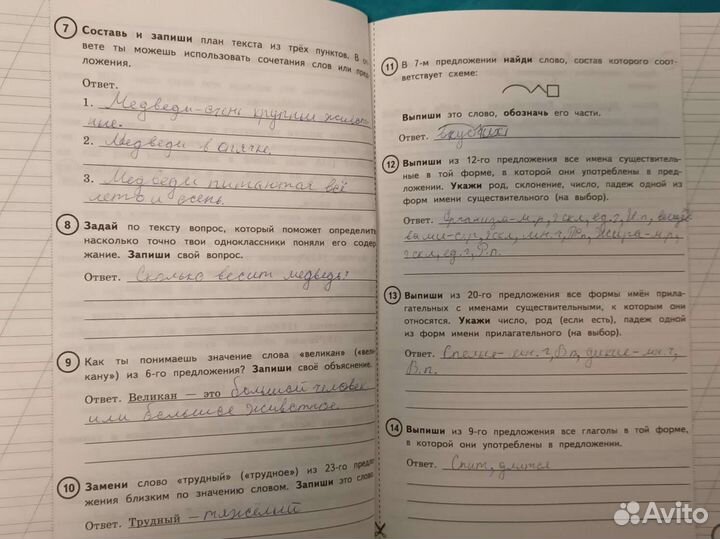 7 Составь и запиши план текста из трёх пунктов. В
вете ты можешь использовать сочетания слов или
ложения.
Ответ.
1. Медведи-очень крупные живот
ные.
2. Медведи в спячке.
3. Медведи питаются всё
лето и осень.
8 Задай по тексту вопрос, который поможет определить
насколько точно твои одноклассники поняли его содер
жание. Запиши свой вопрос.
Ответ. Сколько весит медведь?
9 Как ты понимаешь значение слова «великан» («вели
кану») из 6-го предложения? Запиши своё объяснение.
Ответ. Великан — это большой человек
или большое животное.
10 Замени слово «трудный» («трудное») из 23-го предло
жения близким по значению словом. Запиши это слово
Ответ. Трудный — тяжёлый
11 В 7-м предложении найди слово, состав которого соот-
ветствует схеме:
Выпиши это слово, обозначь его части.
Ответ.
12 Выпиши из 12-го предложения все имена существитель-
ные в той форме, в которой они употреблены в пред-
ложении. Укажи род, склонение, число, падеж одной из
форм имени существительного (на выбор).
Ответ. м.р, 2 скл, ед.ч, И.п,
вами-ср, 2 скл, мн.ч, Тв.п, Жира-м.р,
2 скл, ед.ч, Р.п.
13 Выпиши из 20-го предложения все формы имён прила-
гательных с именами существительными, к которым они
относятся. Укажи число, род (если есть), падеж одной
из форм имени прилагательного (на выбор).
Ответ. Спелые-мн.ч, В.п, дикие-мн.ч,
В.п.
14 Выпиши из 9-го предложения все глаголы в той форме,
в которой они употреблены в предложении.
Ответ. Спит, длится
Avito